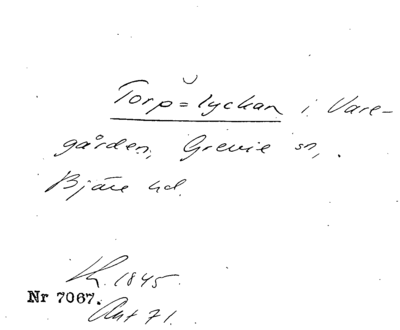 Torp=lyckan i Vare-
gården, Grevie sn,
Bjäre hd.
Kh. 1845.
Nr 7067.
Akt 71.